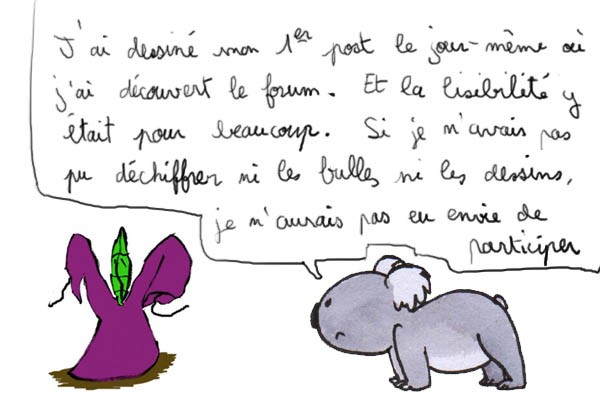 J'ai dessiné mon 1er post le jour-même où
j'ai découvert le forum. Et la lisibilité y
était pour beaucoup. Si je n'avais pas
pu déchiffrer ni les bulles ni les dessins,
je n'aurais pas eu envie de
participer